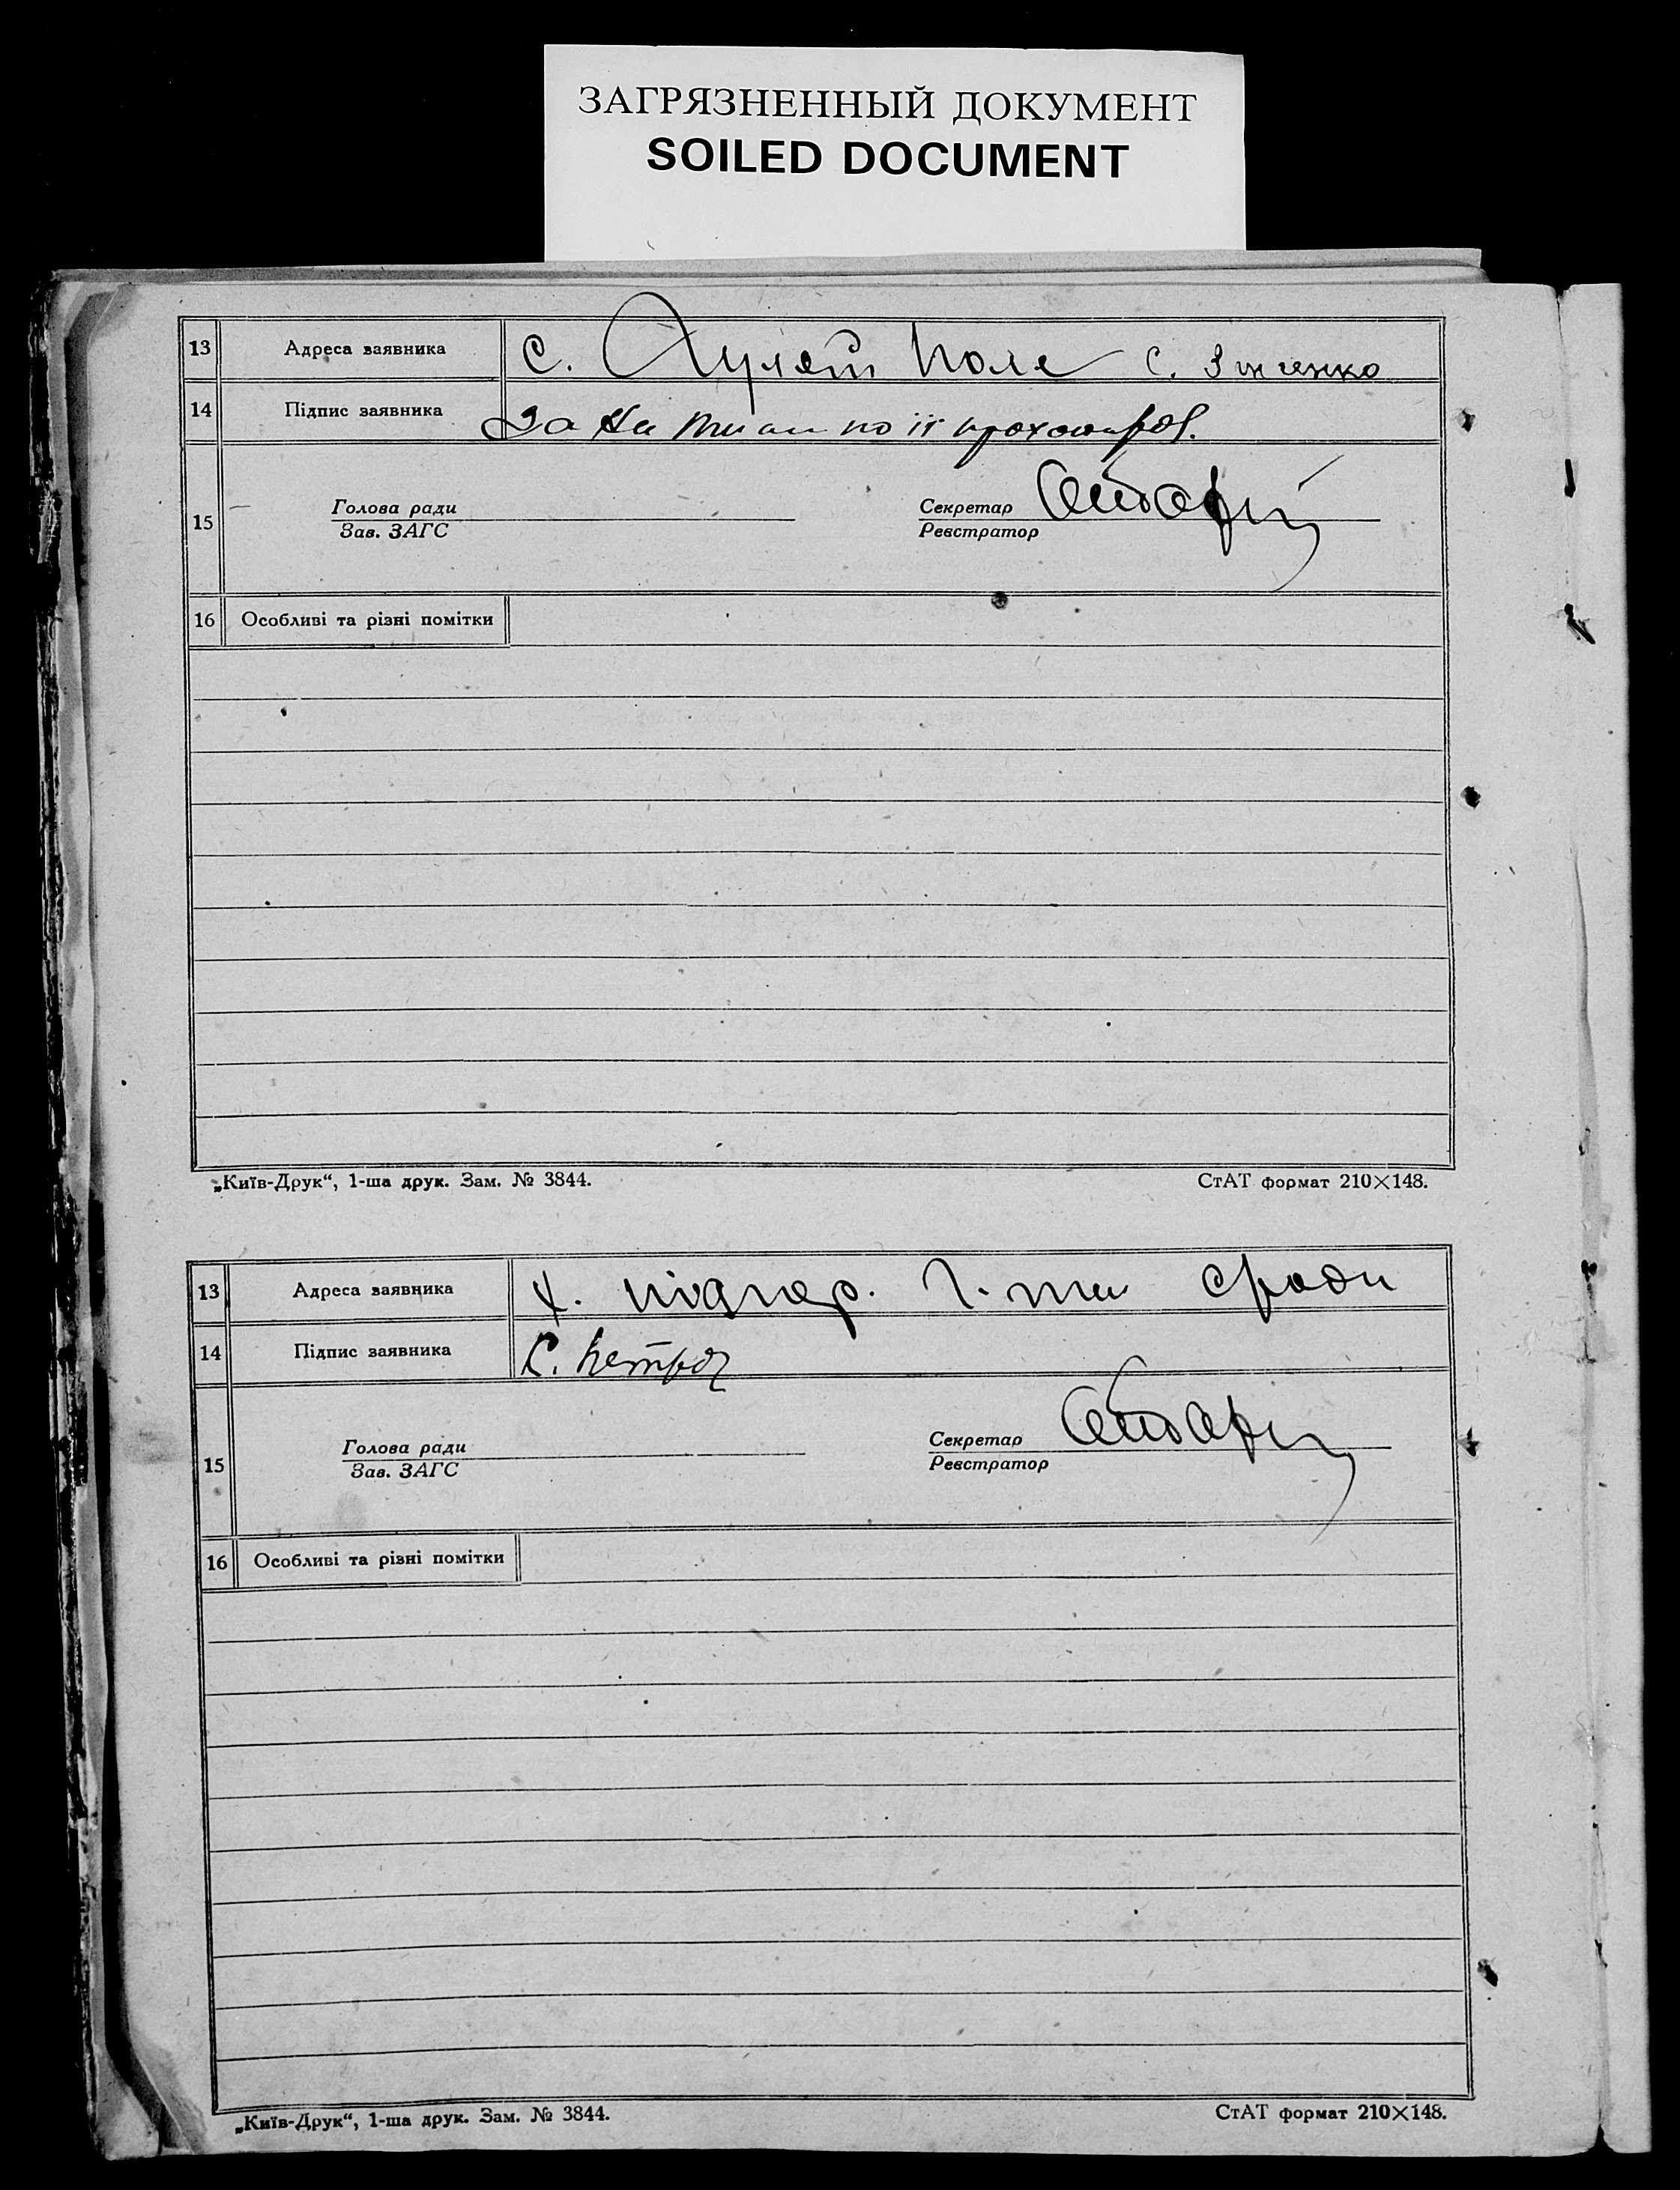 ЗАГРЯЗНЕННЫЙ ДОКУМЕНТ
SOILED DOCUMENT
13 Адреса заявника с. Гуляй Поле с. Зінченко
14 Підпис заявника За по її
Голова ради Секретар
15
Зав. ЗАГС Реєстратор
16 Особливі та різні помітки
„Київ-Друк“, 1-ша друк. Зам. № 3844. СтАТ формат 210×148.
13 Адреса заявника х. с/ради
14 Підпис заявника С. Петро
Голова ради Секретар
15
Зав. ЗАГС Реєстратор
16 Особливі та різні помітки
„Київ-Друк“, 1-ша друк. Зам. № 3844. СтАТ формат 210×148.